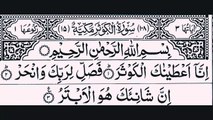 اٰيَاتُهَا ٣ (١٠٨) سُوْرَةُ الْكَوْثَرِ مَكِّيَّةٌ (١٥) رُكُوْعُهَا ١
بِسْمِ اللهِ الرَّحْمٰنِ الرَّحِيْمِ
اِنَّاۤ اَعْطَيْنٰكَ الْكَوْثَرَ ۝ فَصَلِّ لِرَبِّكَ وَانْحَرْ ۝
اِنَّ شَانِئَكَ هُوَ الْاَبْتَرُ ۝